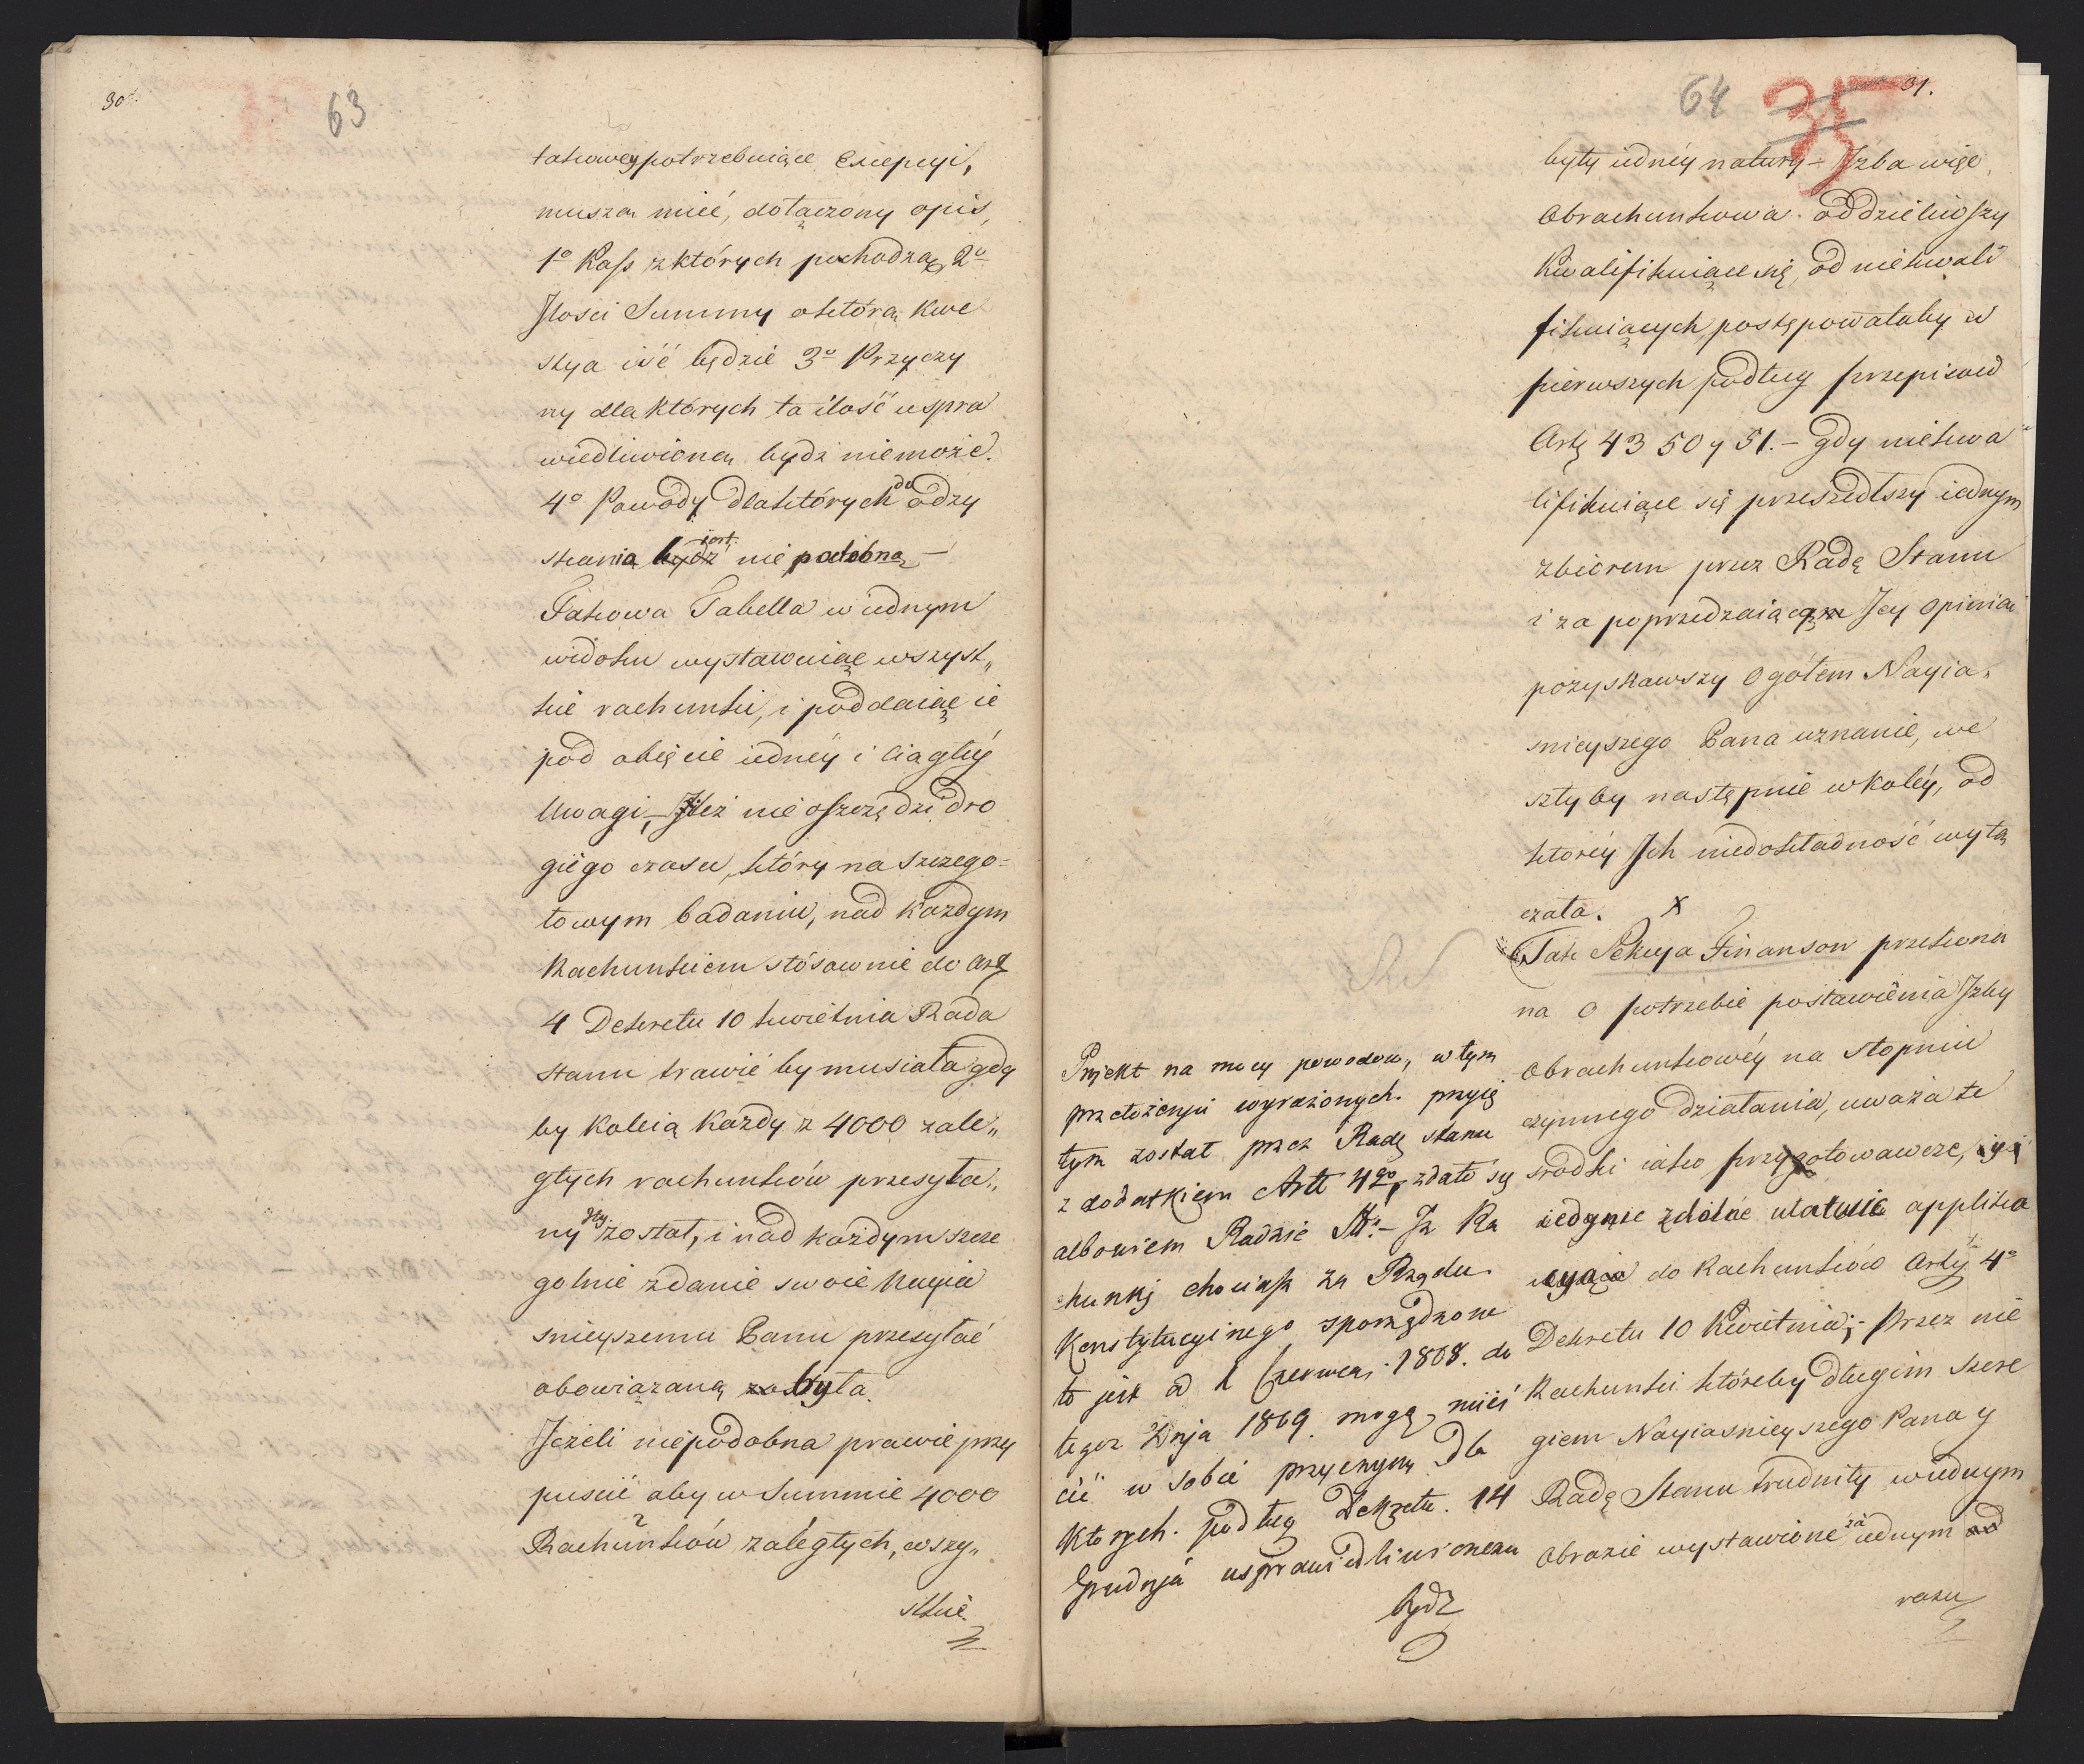 30.
63
takowey potrzebuiące excepcyi,
muszą mieć, dołączony opis,
1o Kass z których pochodzą, 2o
Jlosci Summy o którą kwe
stya iść będzie 3o Przyczy
ny dla których ta ilość uspra
wiedliwioną bydź niemoże.
4o Powody dla których do odzy
skania bydź jest nie podobna –
Takowa Tabella w iednym
widoku wystawuiąc wszyst„
kie rachunki, i poddaiąc ie
pod obięcie iedney i ciągłey
Uwagi, – Jleż nie oszczędzi dro
giego czasu, który na szczego=
łowym badaniu, nad każdym
Rachunkiem stósownie do Art
4 Dekretu 10 kwietnia Rada
stanu trawić by musiała gdy
by koleią każdy z 4000 zale„
głych rachunków przesyła„
ny Jey został, i nad każdym szcze
golnie zdanie swoie Nayia
snieyszemu Panu przesyłać
obowiązaną była.
Jeżeli niepodobna prawie przy
puscić aby w Summie 4000
Rachunków zaległych, wszy„
stkie
64
35
31.
były iedney natury – Jzba więc
Obrachunkowa oddzieliwszy
Kwalifikuiące się, od niekwali
fikuiących, postępowałaby w
pierwszych podług przepisow
Arty 43 50 y 51. – gdy niekwa
lifikuiące się przeszedłszy iednym
zbiorem przez Radę Stanu
i za poprzedzaiącą Jey opinią
pozyskawszy Ogółem Nayia„
snieyszego Pana uznanie, we
szły by następnie w koley, od
ktorey Jch niedokładność wyłą
czała. X
Tak Sekcya Finansow przekona
na o potrzebie postawienia Jzby
Obrachunkowey na stopniu
czynnego działania, uważa te
srodki iako przygotowawcze,
iedynie zdolne applika
do Rachunków Arty 4o
Dekretu 10 Kwietnia; – przez nie
Rachunki któreby długim szere
giem Nayiasnieyszego Pana y
Radę Stanu trudniły w iednym
Obrazie wystawione za iednym
razu
Projekt na mocy powodow, w tym
przełożeniu wyrażonych przyię
tym został przez Radę stanu
z dodatkiem Artt 4go, zdało się
albowiem Radzie St. – Jż Ra
chunki chociaż za Rządu
Konstytucyinego sporządzone
to jest od 1 Czerwca 1808. do
tegoż Dnia 1809. mogą mieś
cić w sobie przyczyny Dla
ktorych podług Dekretu 14
Grudnia usprawiedliwionemi
bydź